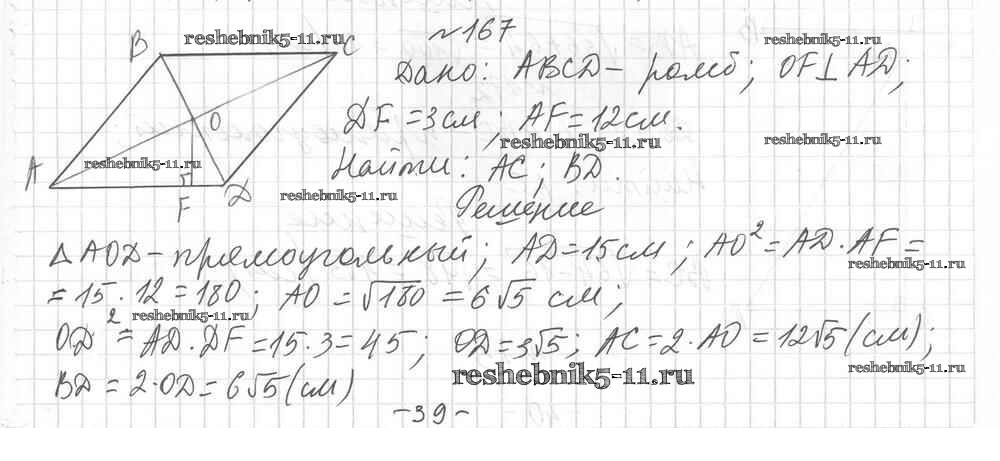 B
reshebnik5-11.ru
C
№167
reshebnik5-11.ru
Дано: ABCD – ромб; OF⊥AD;
O
DF = 3см; AF = 12см.
reshebnik5-11.ru
reshebnik5-11.ru
A
reshebnik5-11.ru
Найти: AC; BD.
F
D
reshebnik5-11.ru
Решение
△AOD – прямоугольный; AD = 15см; AO² = AD·AF =
reshebnik5-11.ru
= 15·12 = 180; AO = √180 = 6√5 см;
reshebnik5-11.ru
OD² = AD·DF = 15·3 = 45; OD = 3√5; AC = 2·AO = 12√5 (см);
reshebnik5-11.ru
reshebnik5-11.ru
BD = 2·OD = 6√5 (см)
-39-